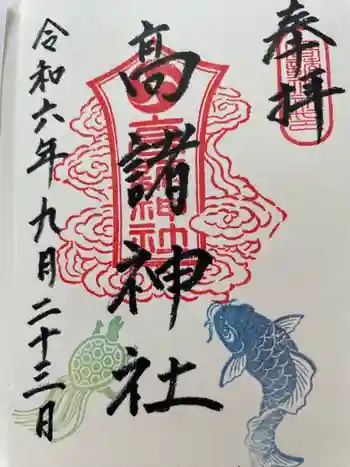 奉拝
高諸神社
令和六年九月二十三日